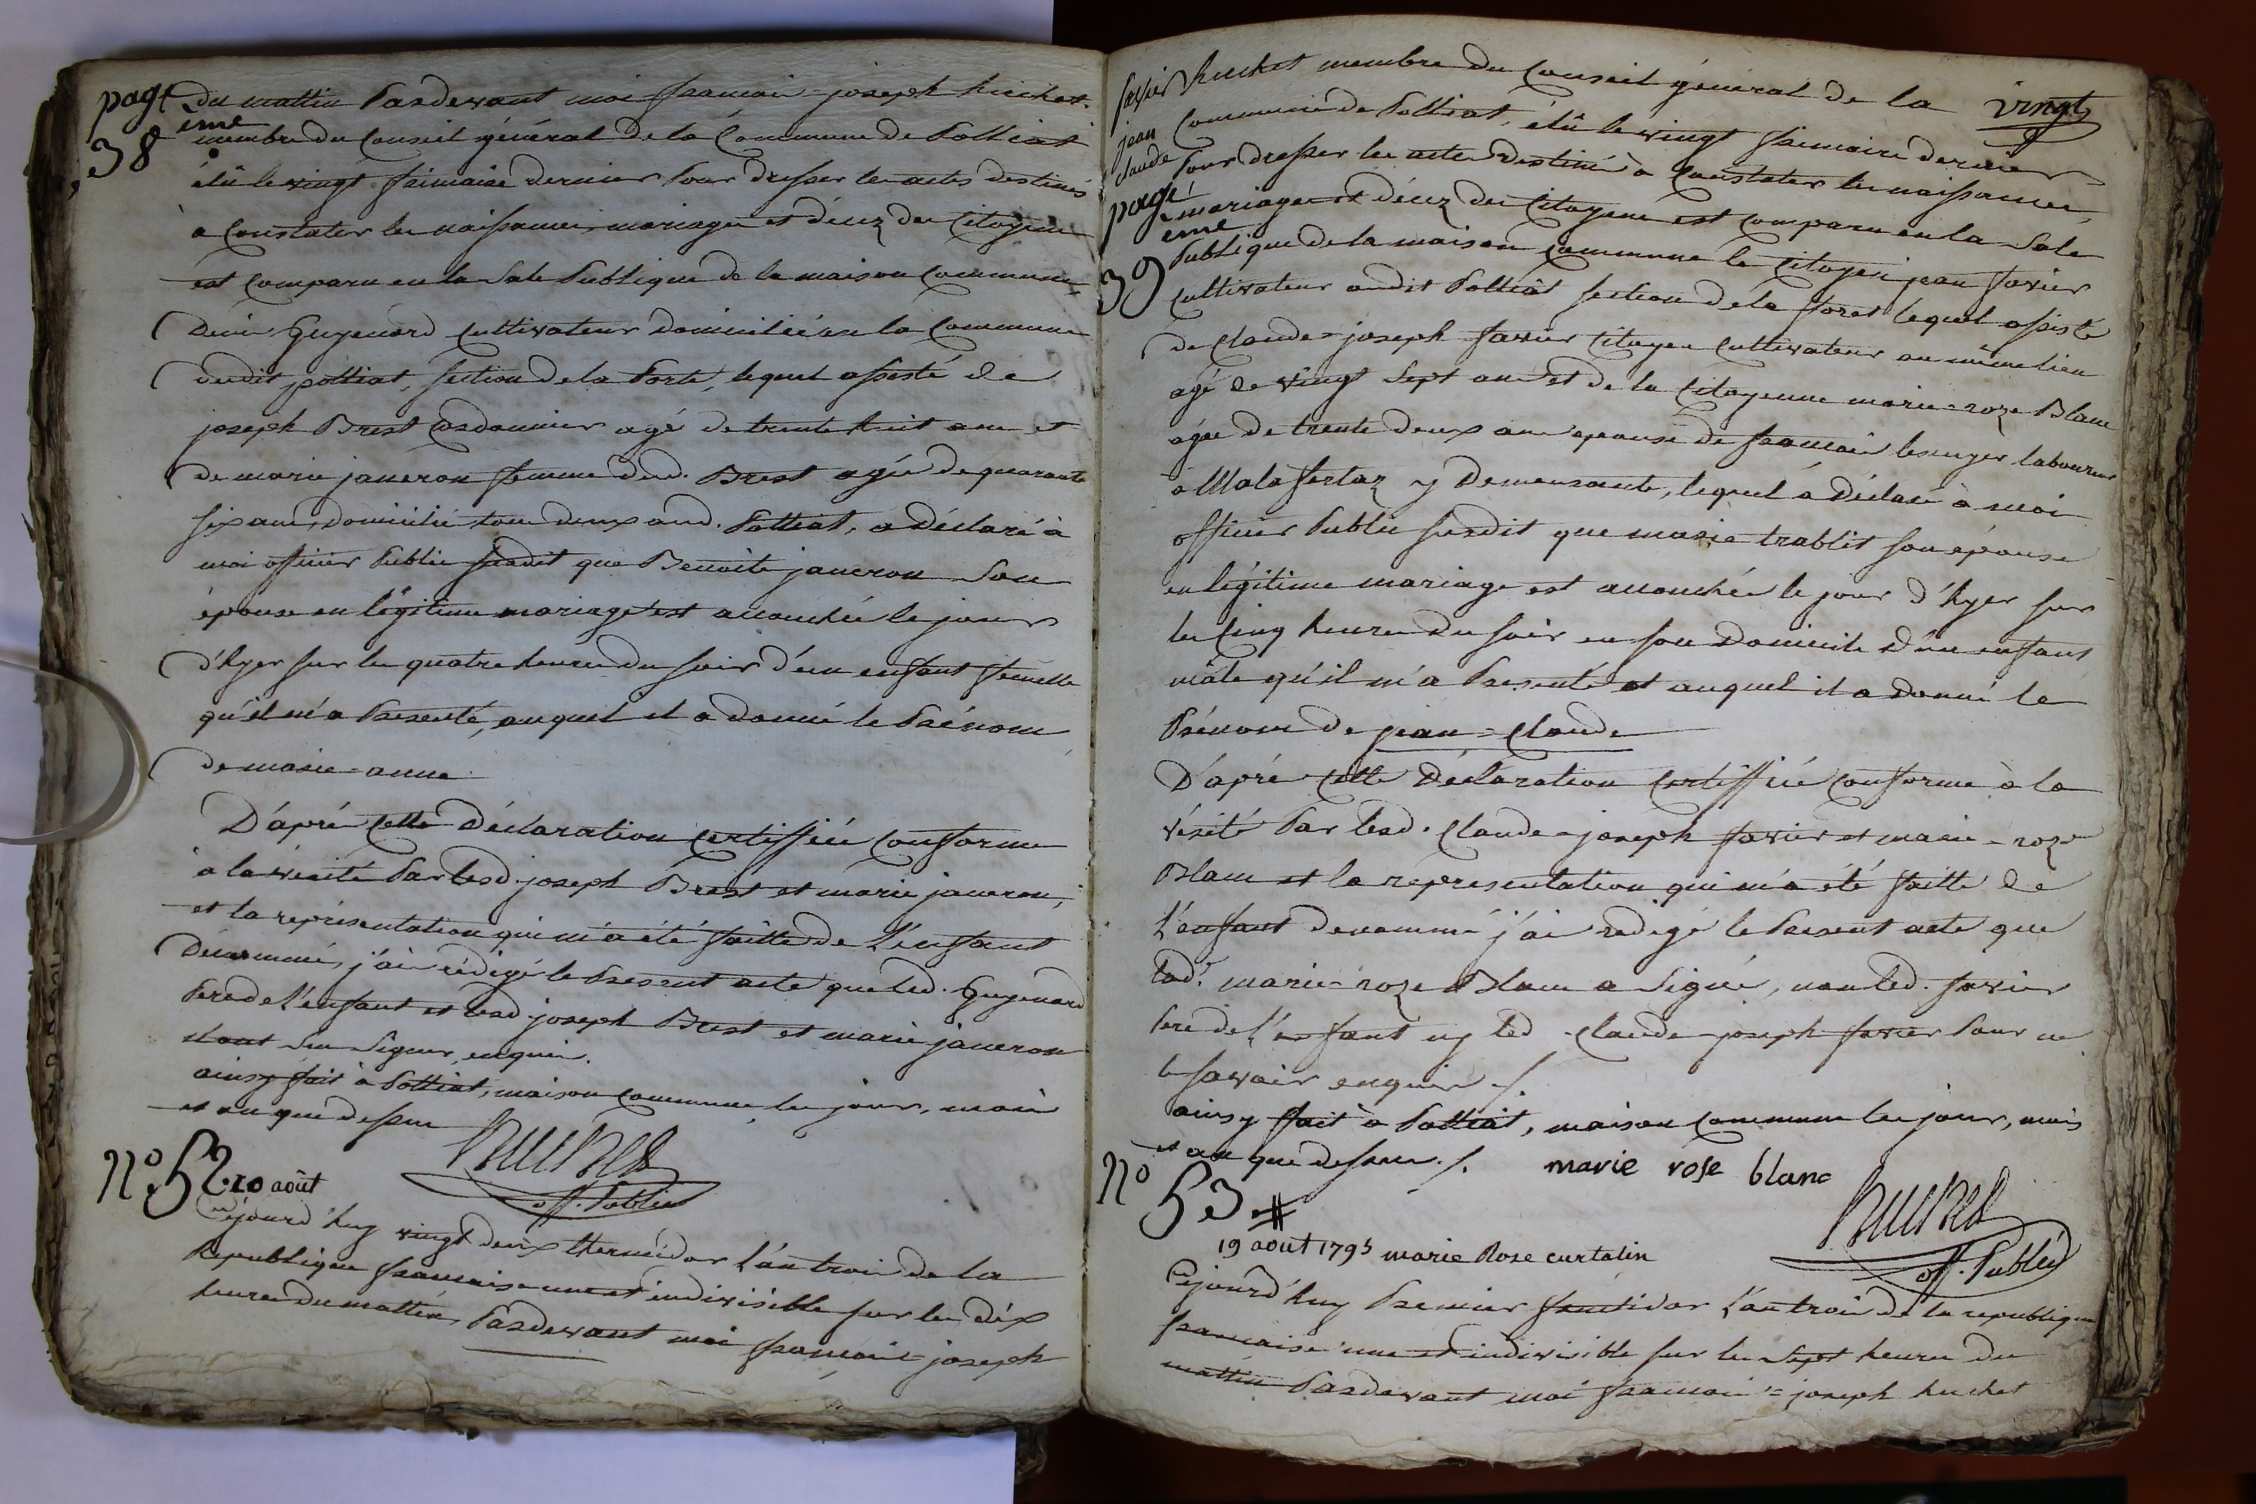 page
38
eme
du mattin Pardevant moi françois=joseph huchet
membre du Conseil général de la Commune de Polliat
élû le vingt frimaire dernier Pour dresser les actes destinés
à Constater les naissances, mariages et décez des Citoyens
est comparu en la Sale Publique de la maison Commune
Denis Guyenard Cultivateur domicilié en la Commune
dudit polliat, section de la Porte, lequel assisté de
joseph Brest Cordonnier agé de trente huit ans et
de marie janeron femme dud. Brest agée de quarante
six ans, domicilié tous deux aud. Polliat, a déclaré à
moi officier Public susdit que Benoite janeron Son
épouse en légitime mariage est accouchée le jour
d'hyer sur les quatre heures du soir d'un enfant femelle
qu'il m'a Presenté, auquel il a donné le Prénom
de marie=anne
D'après Cette Déclaration Certiffiée Conforme
à la vérité Par lesd. joseph Brest et marie janeron,
et la représentation qui m'a été faitte de L'enfant
dénommé, j'ai rédigé le Present acte que led. Guyenard
Pere de L'enfant et lesd. joseph Brest et marie janeron
n'ont Su Signer, enquis.
ainsy fait à Polliat, maison Commune les jour, mois
et an que dessus
huchet
off. Public
N° 52. 10 août
Cejourd'huy vingt deux thermidor L'an trois de la
Republique française une et indivisible sur les dix
heures du mattin, Pardevant moi françois=joseph
favier
jean
claude
page
39
eme
vingt
huchet membre du Conseil général de la
Commune de Polliat, élû le vingt frimaire dernier
Pour dresser les actes destinés à Constater les naissances,
mariages et décez des Citoyens est comparu en la Sale
Publique de la maison Commune le Citoyen jean favier
Cultivateur audit Polliat section de la forest lequel assisté
de Claude=joseph favier Citoyen Cultivateur au même lieu
agé de vingt Sept ans et de la Citoyenne marie=roze Blanc
agée de trente deux ans epouse de françois laboureur
à Malafertaz y Demeurante, lequel a Déclaré à moi
officier Public susdit que marie trablit son épouse
en légitime mariage est accouchée le jour d'hyer sur
les Cinq heures du soir en son Domicile d'un enfant
mâle qu'il m'a Presenté et auquel il a Donné le
Prénom de jean=Claude
D'après Cette Déclaration Certiffiée Conforme à la
vérité Par lesd. Claude=joseph favier et marie=roze
Blanc et la représentation qui m'a été faitte de
L'enfant denommé j'ai redigé le Present acte que
lad. marie=roze Blanc a Signé, non led. favier
Pere de L'enfant ny led. Claude joseph favier Pour ne
le savoir enquis ./.
ainsy fait à Polliat, maison Commune les jour, mois
et an que dessus ./.
marie rose blanc
huchet
off. Public
N° 53
19 août 1795 marie Rose curtalin
Cejourd'huy Premier fructidor L'an trois de la republique
française une et indivisible sur les Sept heures du
mattin Pardevant moi françois=joseph huchet